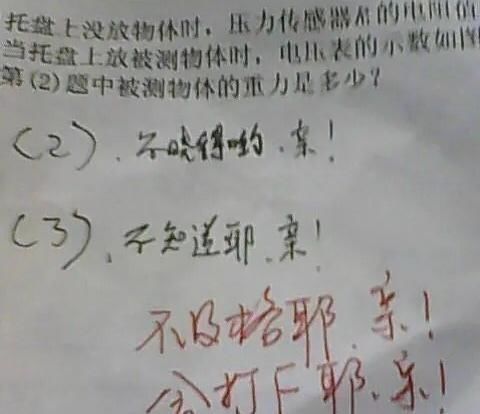 托盘上没放物体时，压力传感器R的电阻值
当托盘上放被测物体时，电压表的示数如图
第(2)题中被测物体的重力是多少？
(2)、不晓得哟、亲！
(3)、不知道耶、亲！
不及格耶、亲！
打F耶、亲！